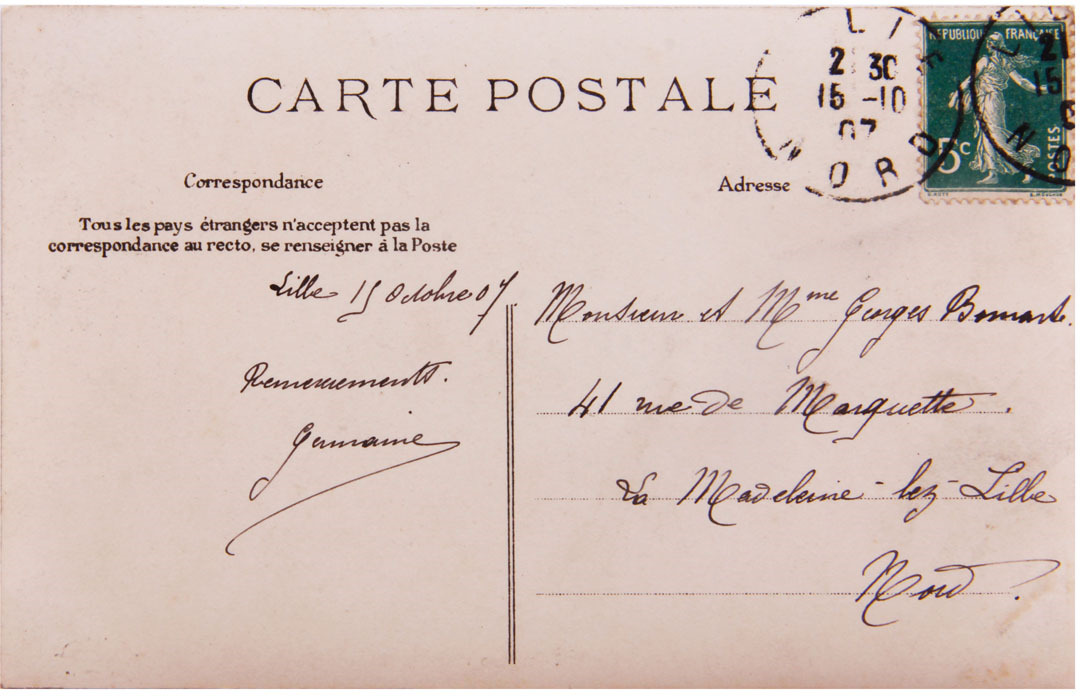 CARTE POSTALE
LILLE
21 30
15 -10
07
NORD
RÉPUBLIQUE FRANÇAISE
5c
POSTES
LI
21
15
NO
Correspondance
Adresse
Tous les pays étrangers n'acceptent pas la
correspondance au recto, se renseigner à la Poste
Lille 15 Octobre 07
Remerciements.
Germaine
Monsieur et Mme Georges
41 rue de Marquette.
La Madeleine-lez-Lille
Nord.